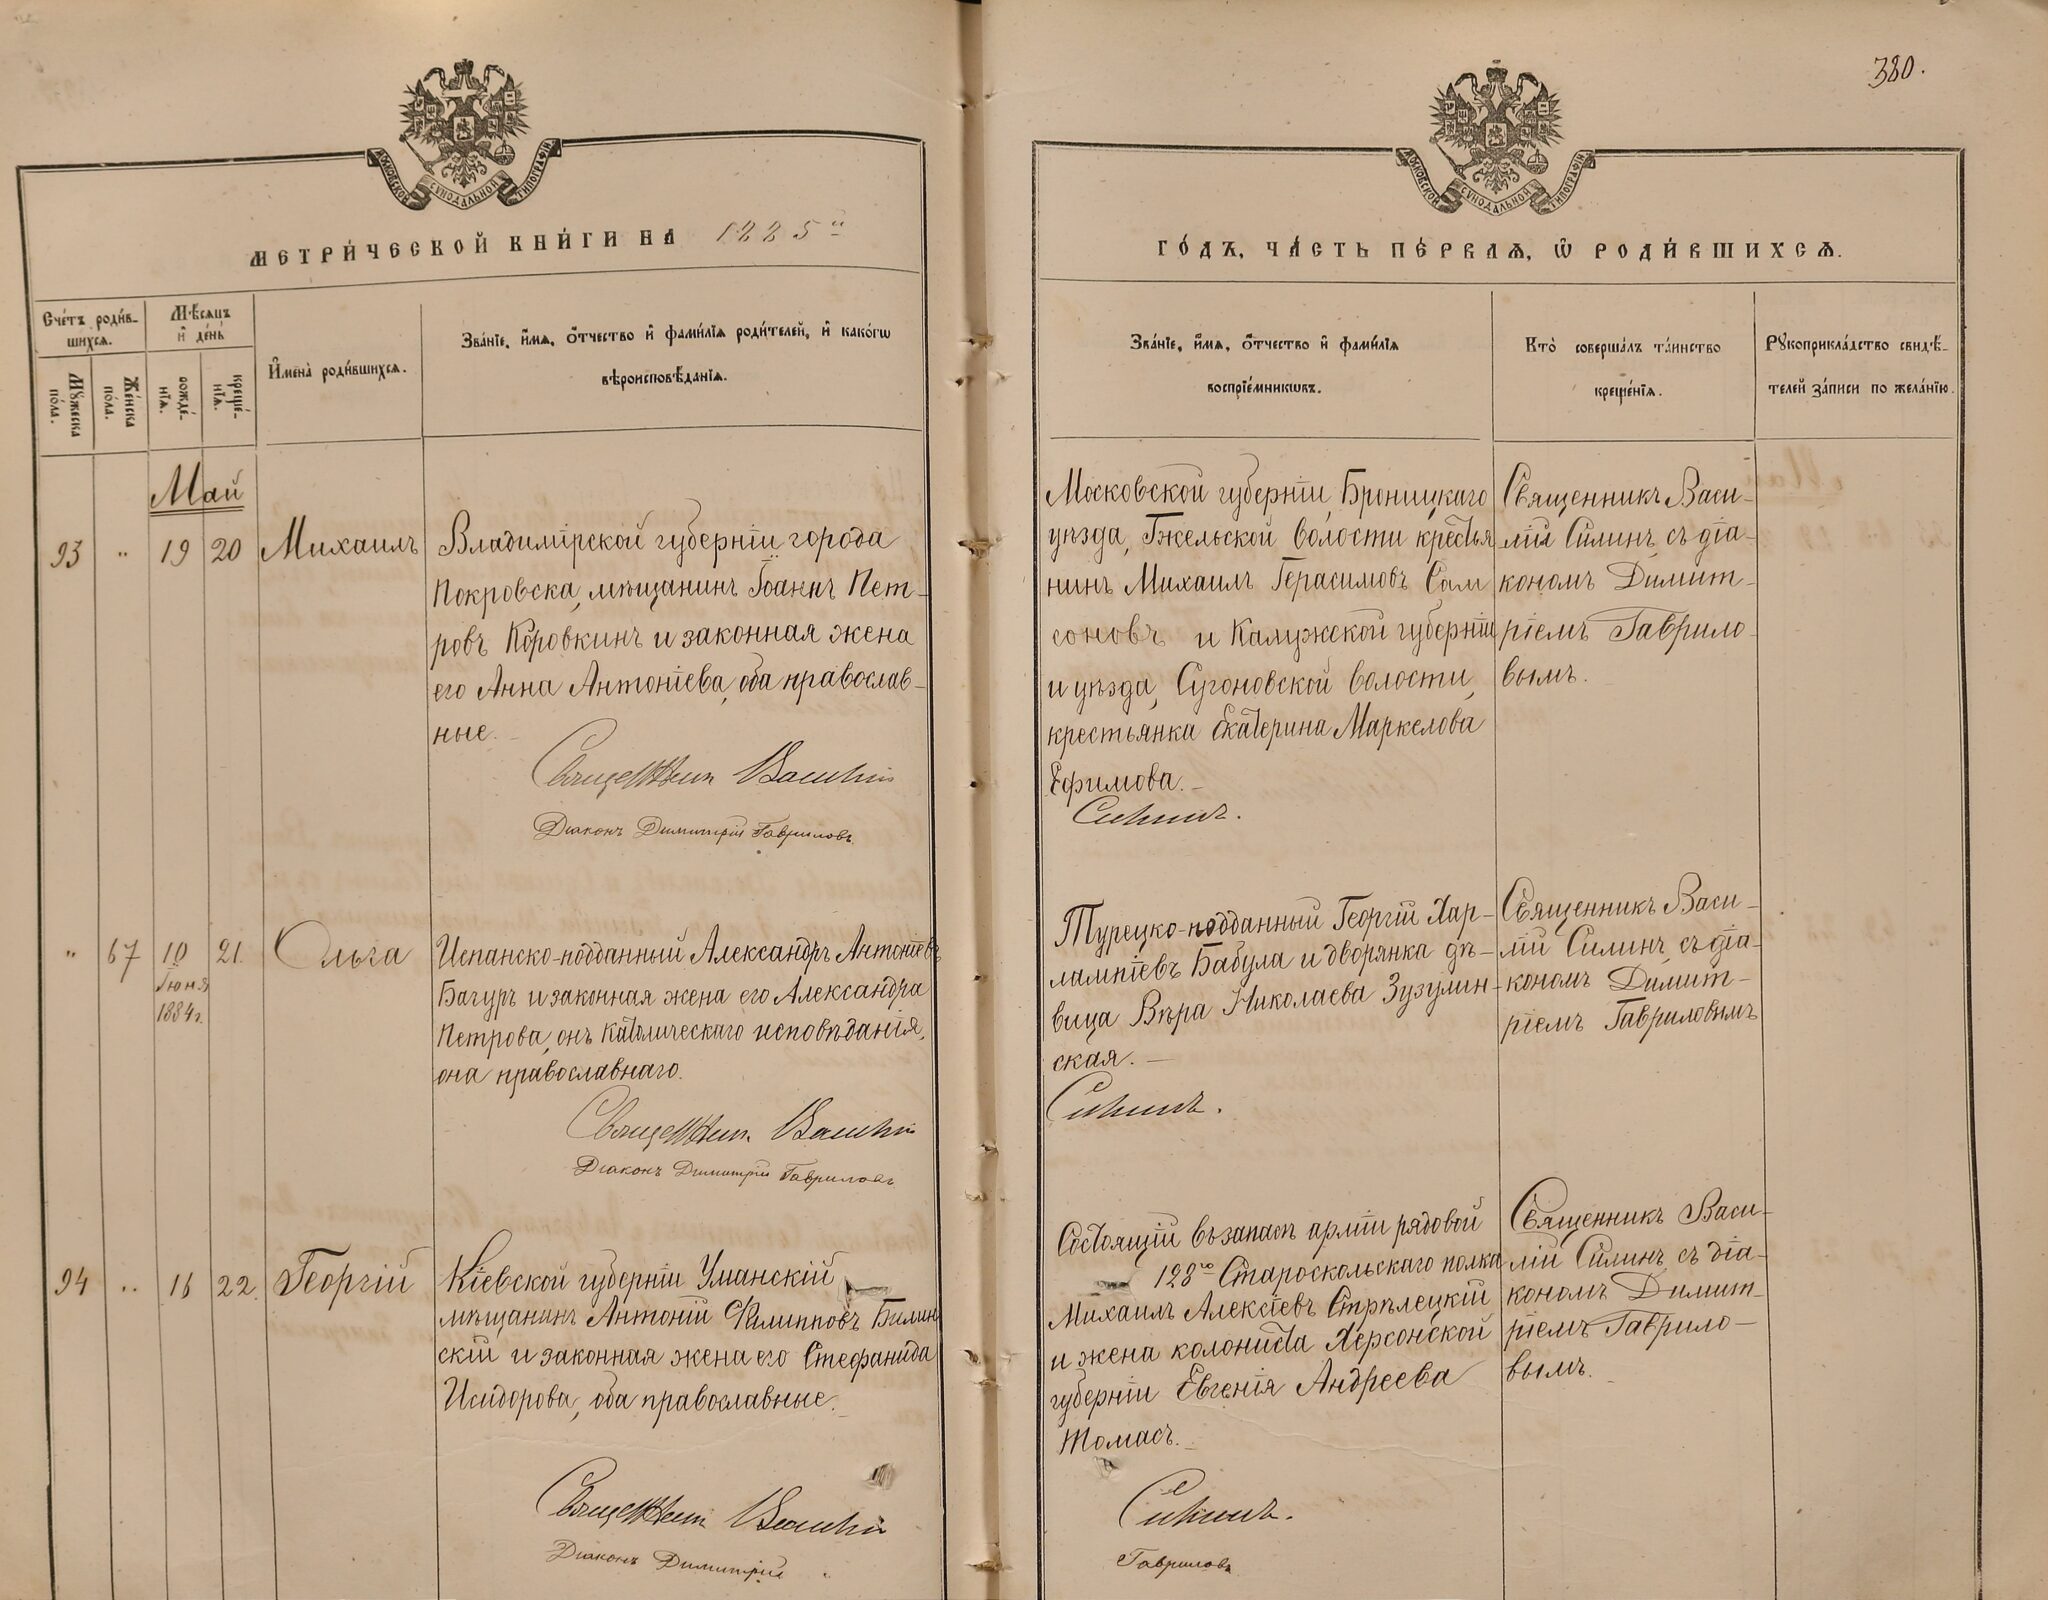 380.
МОСКОВСКОЙ СУНОДАЛЬНОЙ ТИПОГРАФІИ
МОСКОВСКОЙ СУНОДАЛЬНОЙ ТИПОГРАФІИ
МЕТРИ́ЧЕСКОЙ КНИ́ГИ НА 1885й
ГО́ДЪ, ЧА́СТЬ ПЕ́РВАѦ, Ѡ҆ РОДИ́ВШИХСѦ.
Сче́тъ роди́в-
шихсѧ.
Мѣ́сѧцъ
и҆ де́нь
И҆мена̀ роди́вшихсѧ.
Зва́нїе, и҆́мѧ, ѻ҆́тчество и҆ фами́лїѧ роди́телей, и҆ како́гѡ
вѣроисповѣ́данїѧ.
Мꙋ́жеска
по́ла.
Же́нска
по́ла.
рожде́-
нїѧ.
креще́-
нїѧ.
Зва́нїе, и҆́мѧ, ѻ҆́тчество и҆ фами́лїѧ
воспрїе́мникѡвъ.
Кто̀ соверша́лъ та́инство
креще́нїѧ.
Рꙋкоприкла́дство свидѣ́-
телей за́писи по жела́нїю.
Май
93 „ 19 20 Михаилъ
Владимірской губерніи города
Покровска, мѣщанинъ Іоаннъ Пет-
ровъ Коровкинъ и законная жена
его Анна Антоніева, оба православ-
ные.
Священникъ Василій
Діаконъ Димитрій Гавриловъ.
Московской губерніи, Бронницкаго
уѣзда, Гжельской волости крестья
нинъ Михаилъ Герасимовъ Сам
соновъ и Калужской губерніи
и уѣзда, Сугоновской волости,
крестьянка Екатерина Маркелова
Ефимова.
Силинъ.
Священникъ Васи-
лій Силинъ, съ діа-
кономъ Димит-
ріемъ Гаврило-
вымъ.
„ 67 10 21. Ольга
Іюня
1884 г.
Испанско-подданный Александръ Антоніевъ
Багуръ и законная жена его Александра
Петрова, онъ католическаго исповѣданія,
она православнаго.
Священникъ Василій
Діаконъ Димитрій Гавриловъ
Турецко-подданный Георгій Хар-
лампіевъ Бабула и дворянка дѣ-
вица Вѣра Николаева Зузулин-
ская.
Силинъ.
Священникъ Васи-
лій Силинъ, съ діа-
кономъ Димит-
ріемъ Гавриловымъ
94 „ 16 22. Георгій
Кіевской губерніи Уманскій
мѣщанинъ Антоній Филипповъ Билин
скій и законная жена его Стефанида
Исидорова, оба православные.
Священникъ Василій
Діаконъ Димитрій
Состоящій въ запасѣ арміи рядовой
123го Староскольскаго полка
Михаилъ Алексіевъ Стрѣлецкій
и жена колониста Херсонской
губерніи Евгенія Андреева
Томасъ.
Силинъ.
Гавриловъ
Священникъ Васи-
лій Силинъ съ діа-
кономъ Димит-
ріемъ Гаврило-
вымъ.